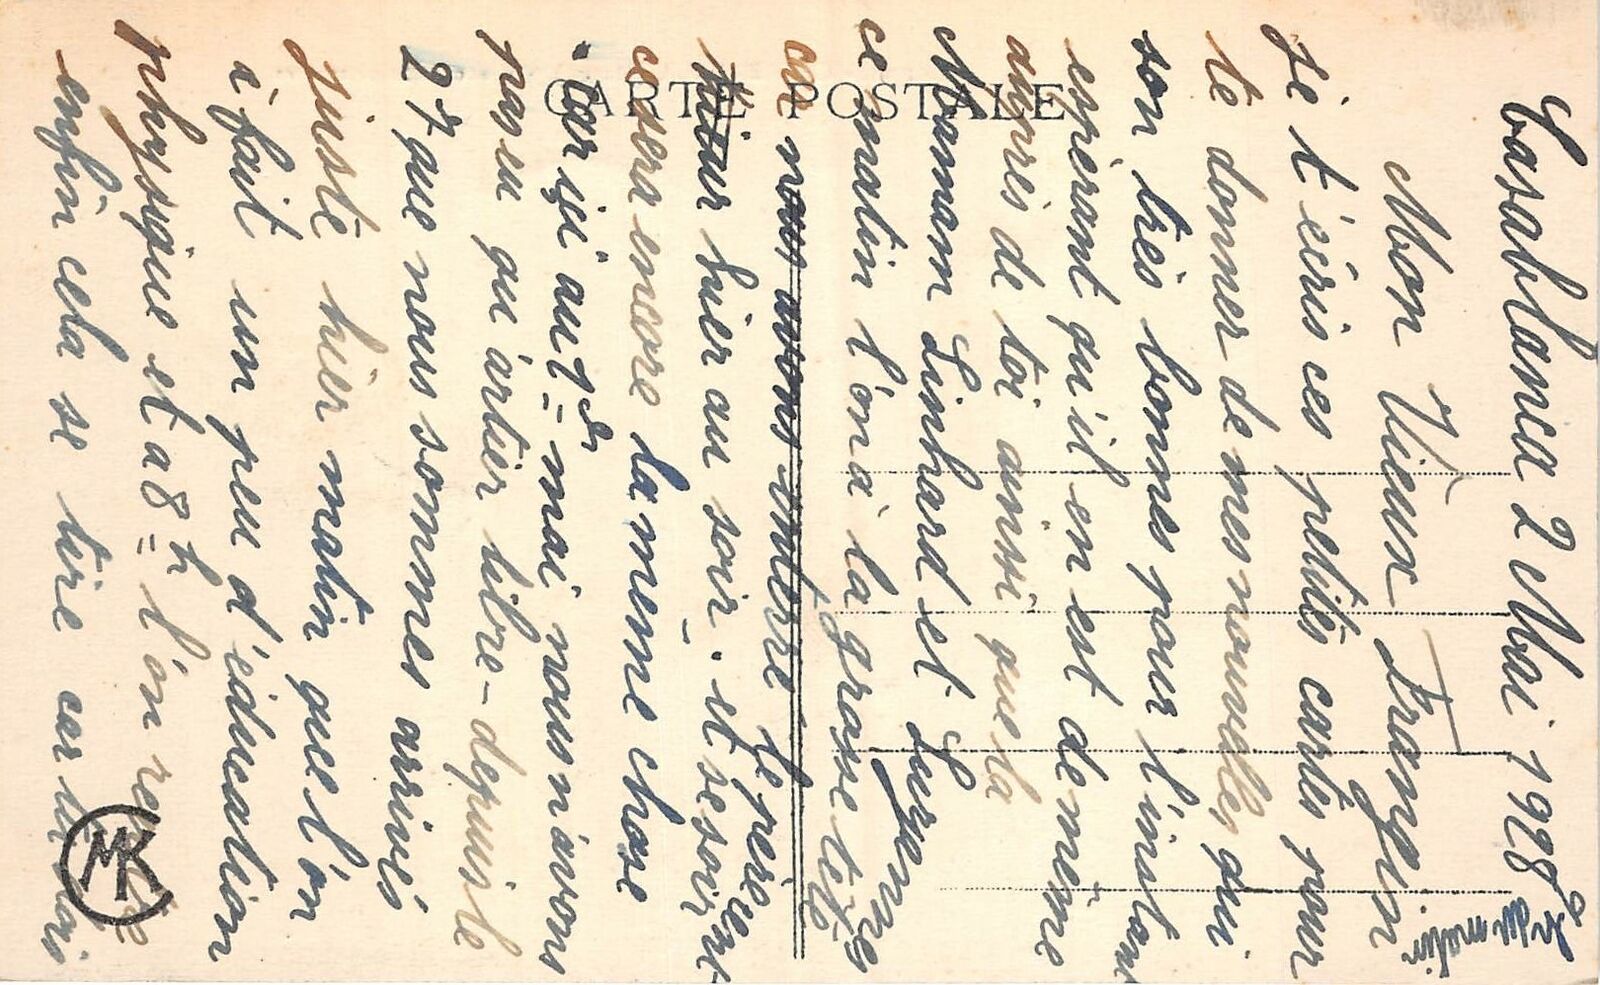 CARTE POSTALE
Casablanca 2 Mai 1928 9 h du matin
Mon Vieux Frangin
Je t'écris ces petites cartes pour
te donner de mes nouvelles qui
son très bonnes pour l'instant
espérant qu'il en est de même
auprès de toi ainsi que la
Maman Linhard et
ce matin l'on a la grosse tête
car nous avons
hier au soir. et se soir
ce sera encore la même chose
. Car ici au 1er mai nous n'avons
pas eu quartier libre - depuis le
27 que nous sommes arrivés
juste hier matin que l'on
a fait un peu d'éducation
physique et a 8 h l'on
enfin cela se tire car
MK